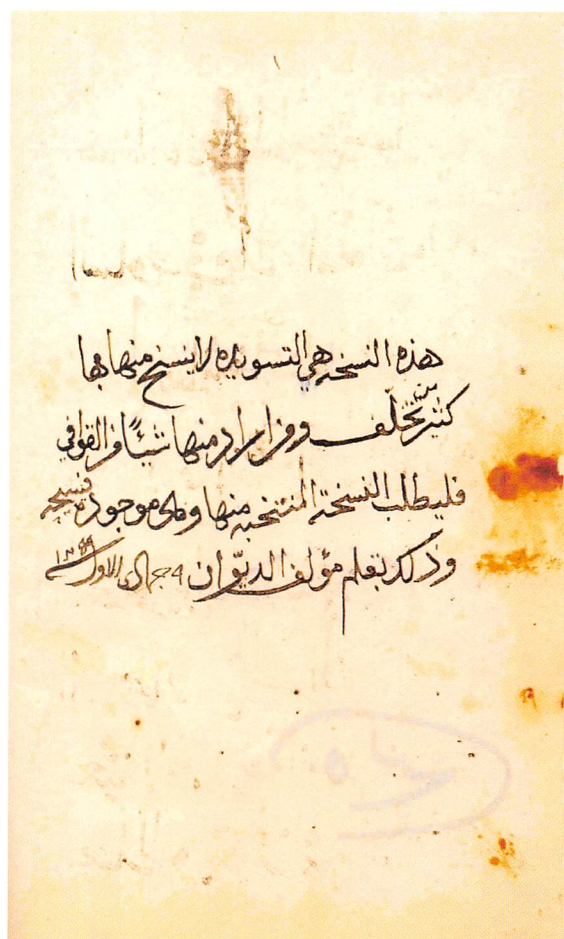 هذه النسخه هي التسويده لا ينسخ منها بها
كثير من تخلف ومن اراد منها شيئا من القوافي
فليطلب النسخة المنتخبه منها وهي موجوده
وذلك بقلم مؤلف الديوان ٩ جماد الاول